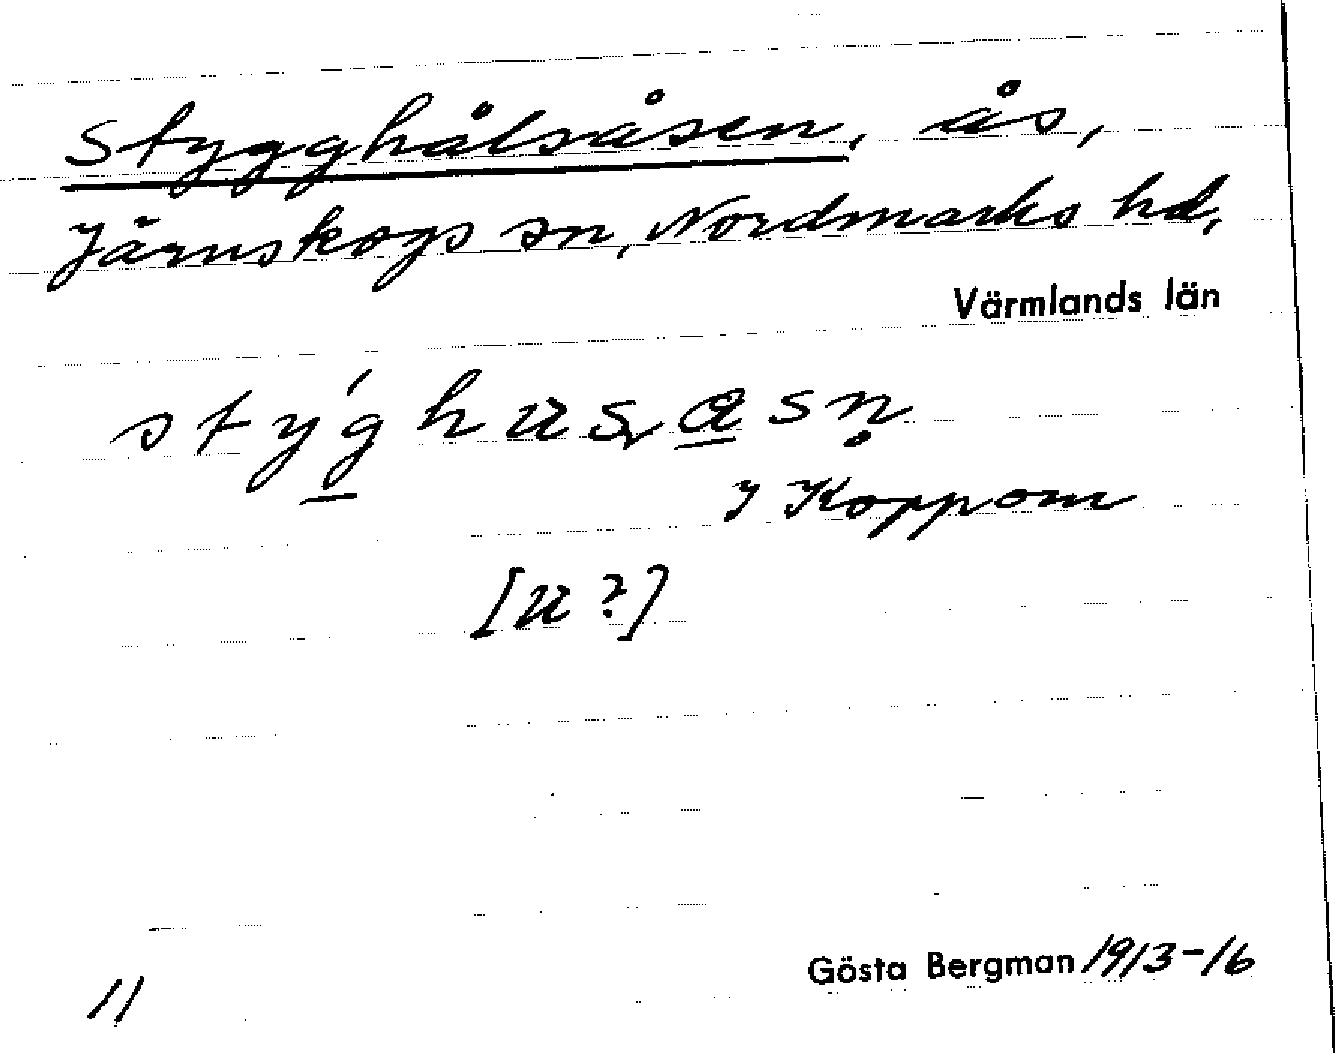 Stygghålsåsen, ås,
Järnskogs sn, Nordmarks hd,
Värmlands län
stýg̲husa̲sn̥
I Koppom
[u?]
Gösta Bergman 1913-16
11